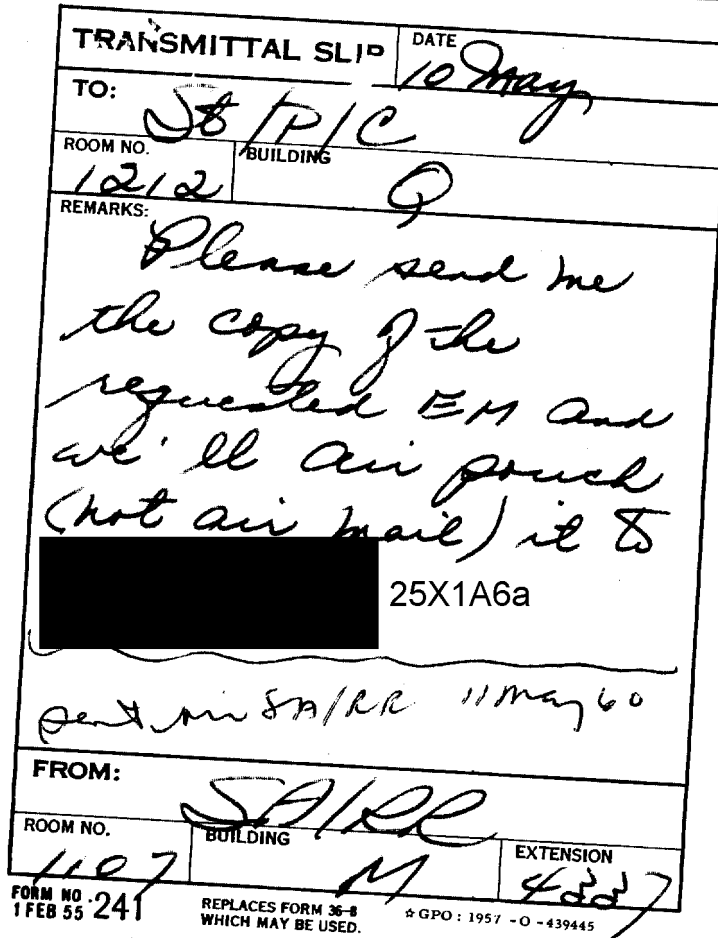 TRANSMITTAL SLIP
DATE
10 May
TO:
St/P/C
ROOM NO.
1212
BUILDING
Q
REMARKS:
Please send me
the copy of the
requested EM and
we'll air pouch
(not air mail) it to
25X1A6a
sent via SA/RR 11 May 60
FROM:
SA/RR
ROOM NO.
1107
BUILDING
M
EXTENSION
4337
FORM NO. 241
1 FEB 55
REPLACES FORM 36-8
WHICH MAY BE USED.
☆ GPO : 1957 -O -439445